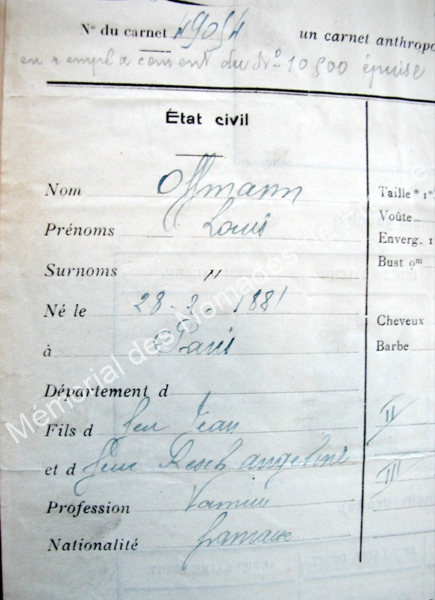 N° du carnet 49054 un carnet anthropo
en remplacement du N° 10500 épuisé
État civil
Nom Offmann
Prénoms Louis
Surnoms "
Né le 28 - - 1881
à Paris
Département d
Fils d feu Jean
et d feue Resch Angeline
Profession Vannier
Nationalité française
Taille * 1m
Voûte
Enverg. 1
Bust 0m
Cheveux
Barbe
II
III
Mémorial des Nomades de France